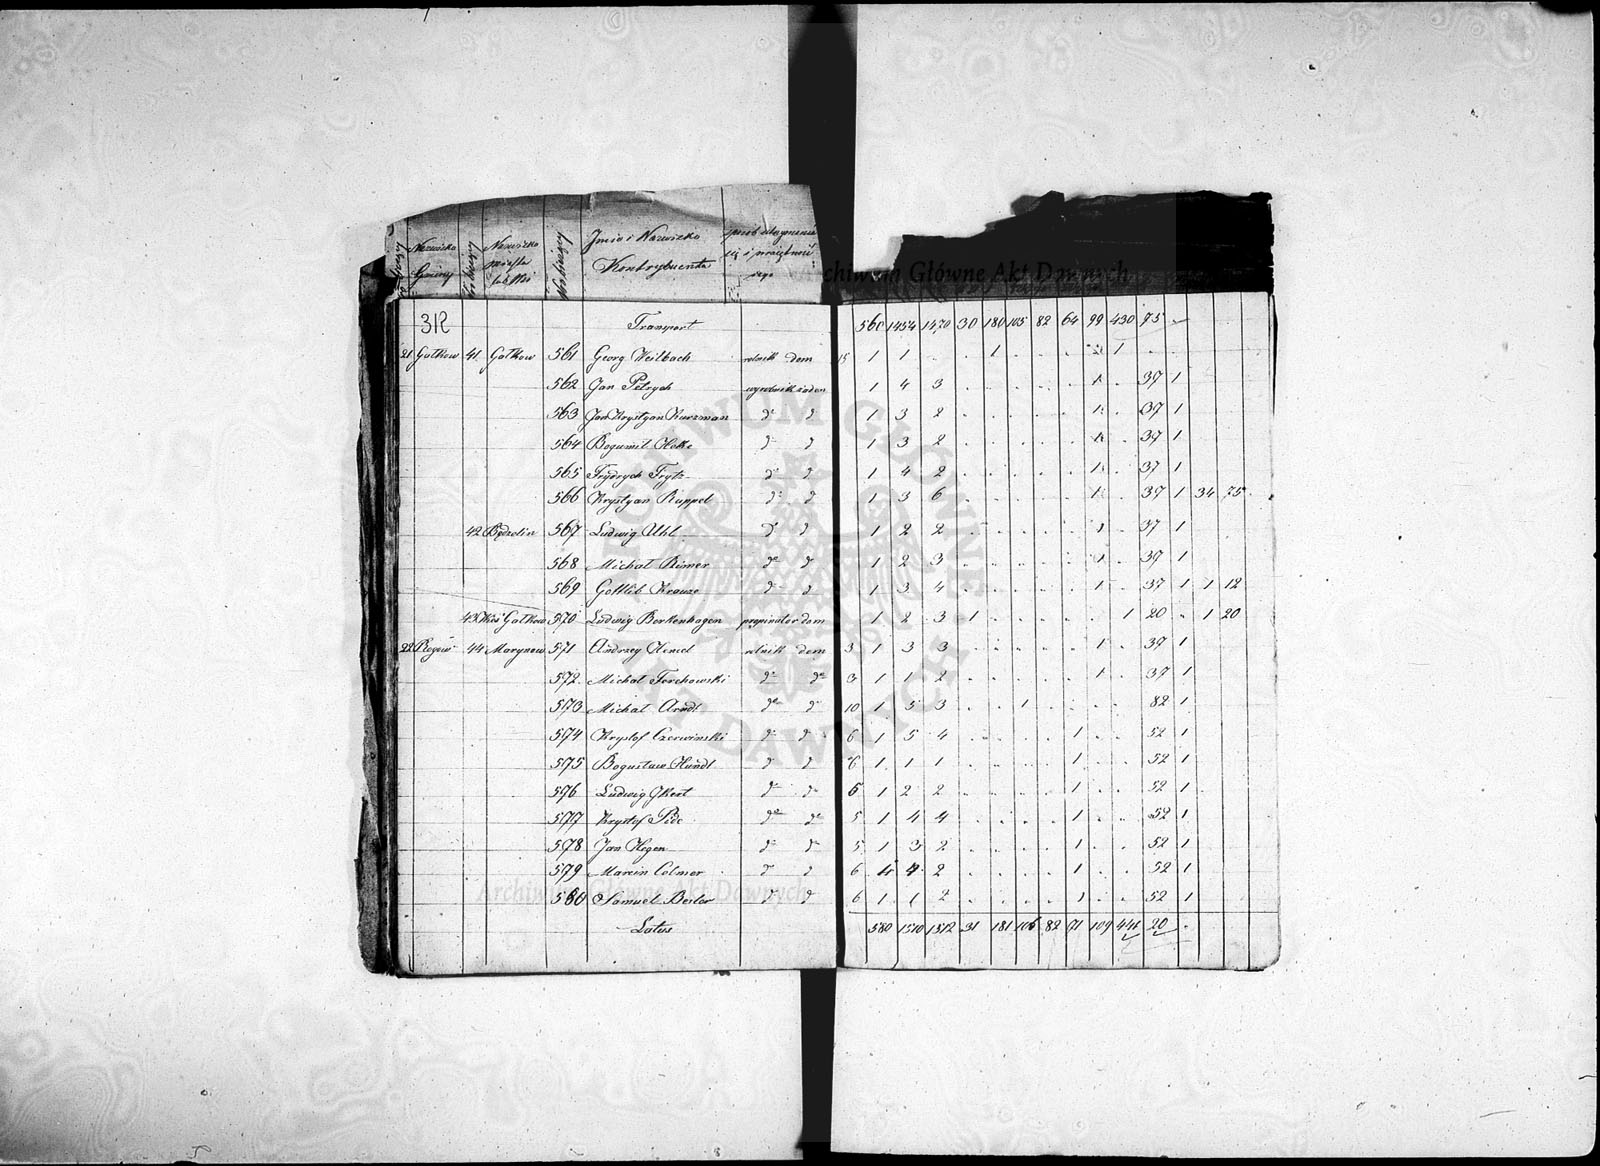 Nazwisko Gminy
Nazwisko miasta lub Wsi
Imie i Nazwisko Kontrybuenta
312 Transport 560 1454 1470 30 180 105 82 64 99 430 75
21 Gałkow 41 Gałkow 561 Georg Weilbach rolnik dom 15 1 1 . . 1 . . . . 1 . .
562 Jan Petrych wyrobnik żaden 1 4 3 . . . . . 1 . 37 1
563 Jan Krystyan Kurzman do d 1 3 2 . . . . . 1 . 37 1
564 Bogumił Hotke d d 1 3 2 . . . . . 1 . 37 1
565 Frydrych Frytz do d 1 4 2 . . . . . 1 . 37 1
566 Krystyan Ruppel do d 1 3 6 . . . . . 1 . 37 1 34 75
42 Będzelin 567 Ludwig Uhl do d 1 2 2 . . . . . 1 . 37 1
568 Michał Rimer do d 1 2 3 . . . . . 1 . 37 1
569 Gottlib Krauze d d 1 3 4 . . . . . 1 . 37 1 1 12
43 Wieś Gałkow 570 Ludwig Berkenhagen propinator dom 1 2 3 1 . . . . . 1 20 . 1 20
22 Rogów 44 Marynow 571 Andrzey Hencel rolnik dom 3 1 3 3 . . . . . 1 . 37 1
572 Michał Torchowski do do 3 1 1 2 . . . . . 1 . 37 1
573 Michał Arndt do d 10 1 5 3 . . 1 . . . . 82 1
574 Krystof Czerwinski do d 6 1 5 4 . . . . 1 . . 52 1
575 Bogusław Hundt d d 6 1 1 1 . . . . 1 . . 52 1
576 Ludwig Ikert d do 5 1 2 2 . . . . 1 . . 52 1
577 Krystof Pide do do 5 1 4 4 . . . . 1 . . 52 1
578 Jan Hegen d do 5 1 3 2 . . . . 1 . . 52 1
579 Marcin Colmer d d 6 1 4 2 . . . . 1 . . 52 1
580 Samuel Beiler d d 6 1 1 2 . . . . 1 . . 52 1
Latus 580 1510 1512 31 181 106 82 71 109 441 20
Archiwum Główne Akt Dawnych
Archiwum Główne Akt Dawnych
ARCHIWUM GŁÓWNE AKT DAWNYCH